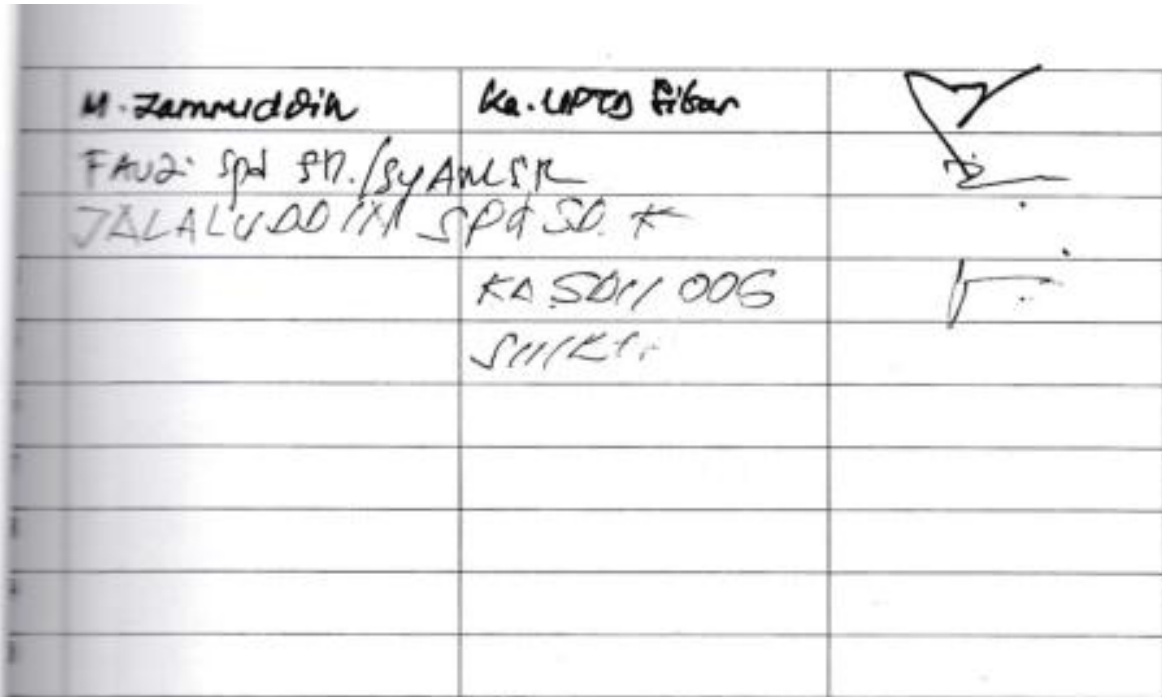 M. Zamruddin Ka. UPTD
FAUZi Spd SD./SYAMSIR
JALALUDDIN SPd SD. K
KA SDN 006